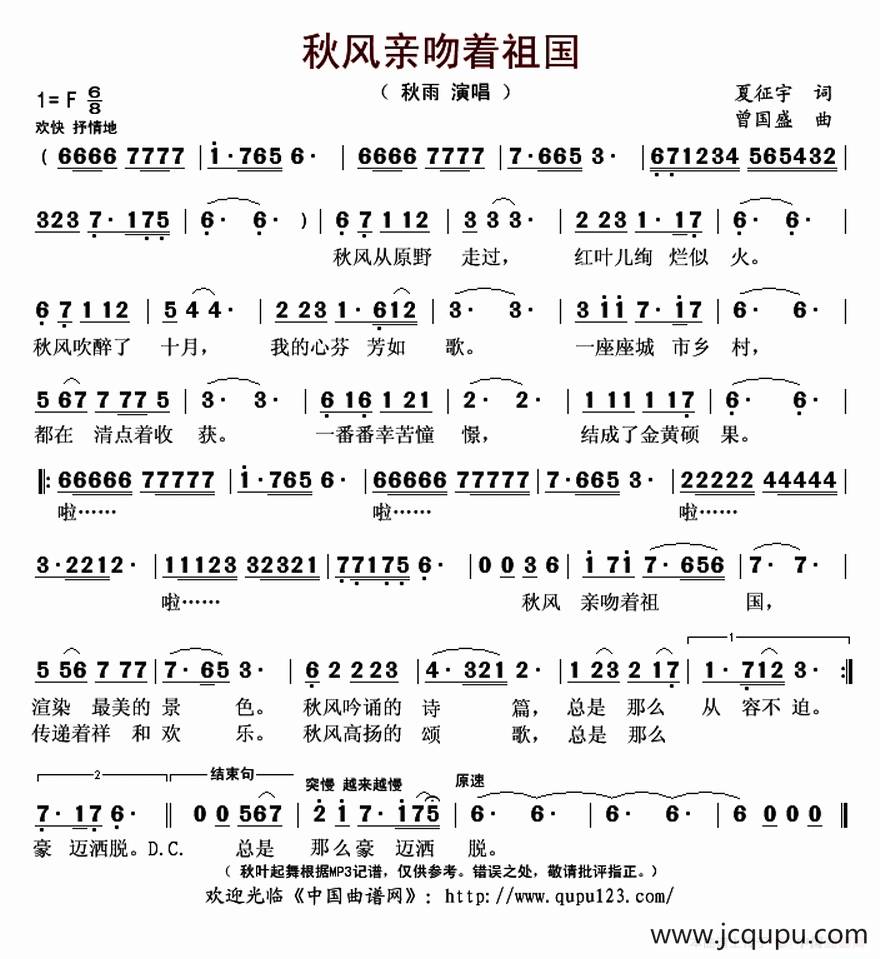 秋风亲吻着祖国
（ 秋雨 演唱 ）
1=F 6/8
欢快 抒情地
夏征宇 词
曾国盛 曲
( 6666 7777 | i·765 6· | 6666 7777 | 7·665 3· | 671234 565432 |
323 7·175 | 6· 6· ) | 6 7 112 | 3 3 3· | 2 23 1·17 | 6· 6· |
秋风从原野 走过， 红叶儿绚 烂似 火。
6 7 112 | 5 4 4· | 2 23 1·612 | 3· 3· | 3 ii 7·i7 | 6· 6· |
秋风吹醉了 十月， 我的心芬 芳如 歌。 一座座城 市乡 村，
5 67 7 77 5 | 3· 3· | 6 16 1 21 | 2· 2· | 1 11 1 17 | 6· 6· |
都在 清点着收 获。 一番番幸苦憧 憬， 结成了金黄硕 果。
‖: 66666 77777 | i·765 6· | 66666 77777 | 7·665 3· | 22222 44444 |
啦…… 啦…… 啦……
3·2212· | 11123 32321 | 77175 6· | 0 0 3 6 | i 7i 7·656 | 7· 7· |
啦…… 秋风 亲吻着祖 国，
5 56 7 77 | 7·65 3· | 6 2 223 | 4·321 2· | 1 23 2 17 | 1 1·712 3· :‖
渲染 最美的 景 色。 秋风吟诵的 诗 篇， 总是 那么 从 容不 迫。
传递着祥 和 欢 乐。 秋风高扬的 颂 歌， 总是 那么
2 结束句 突慢 越来越慢 原速
7·17 6· ‖ 0 0 567 | 2 i 7·i75 | 6· 6· | 6· 6· | 6 0 0 0 ‖
豪 迈洒脱。D.C. 总是 那么豪 迈洒 脱。
（ 秋叶起舞根据MP3记谱，仅供参考。错误之处，敬请批评指正。）
欢迎光临《中国曲谱网》：http://www.qupu123.com/
www.jcqupu.com